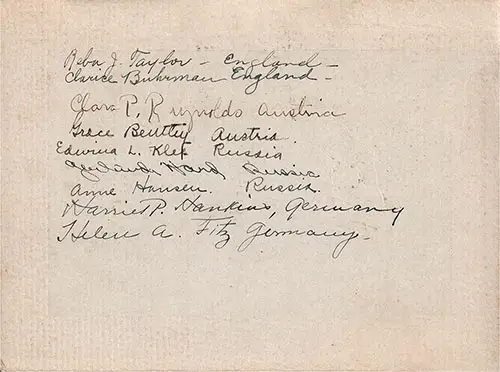 Reba J. Taylor - England -
Clarice Buhrman England -
Clara P. Reynolds Austria
Grace Bentley Austria.
Edwina L. Klee Russia
Ward Russia
Anne Hansen. Russia.
Harriet P. Hankins, Germany
Helen A. Fitz Germany -